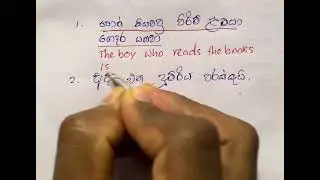 1. පොත් කියවපු පිරිමි ළමයා
ගෙදර යනවා
The boy who reads the books
is
2. එන දුම්රිය පරක්කුයි.